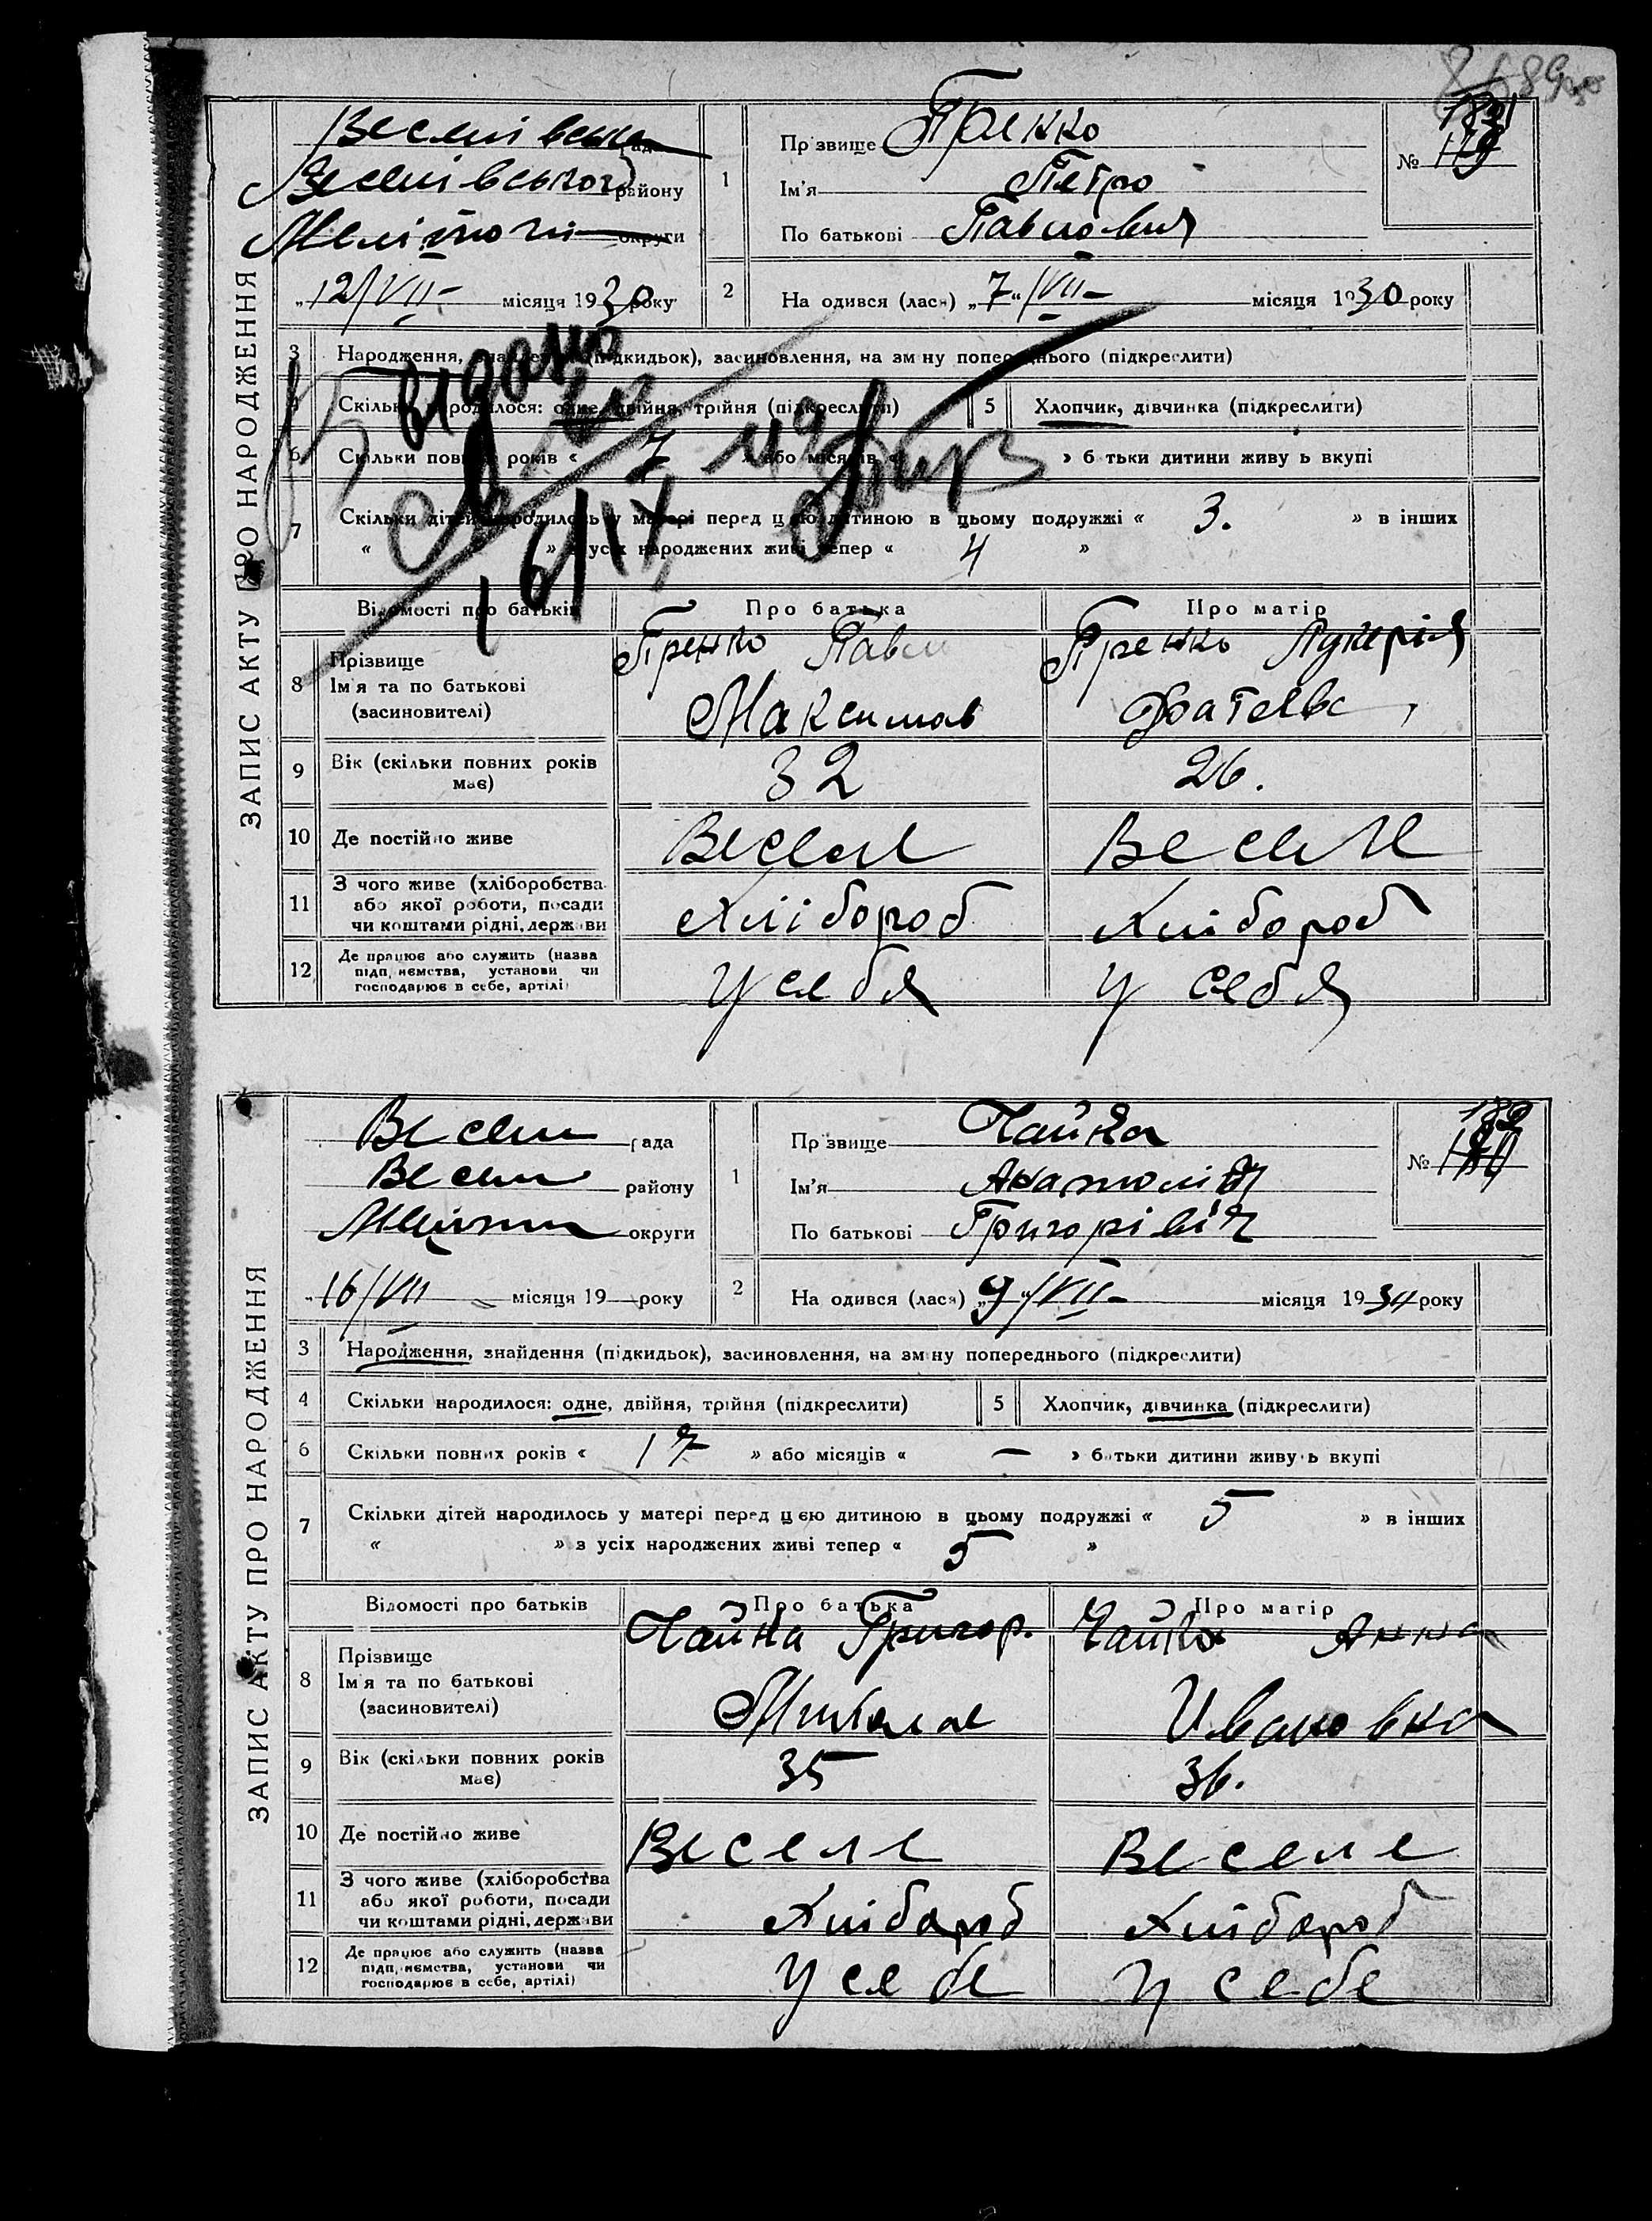 ЗАПИС АКТУ ПРО НАРОДЖЕННЯ
Веселівська рада
Веселівського району
Меліто округи
"12/VII- місяця 1930 року
1
Прізвище
Ім'я Петро
По батькові Павлович
№ 179
2 На одився (лася) „7"/VII- місяця 1930 року
3 Народження, знайдення (підкидьок), засиновлення, на зм ну попереднього (підкреслити)
видано
4 Скільки народилося: одне, двійня, трійня (підкреслити)
5 Хлопчик, дівчинка (підкреслити)
6 Скільки повних років « 7 » або місяців « » б тьки дитини живу ь вкупі
7 Скільки дітей народилось у матері перед цією дитиною в цьому подружжі « 3. » в інших
« » з усіх народжених живі тепер « 4 »
16/IX
Відомості про батьків
Про батька
Про матір
8 Прізвище
Ім'я та по батькові
(засиновителі)
Павл
Максимов
Лукерія
Фатеевс
9 Вік (скільки повних років
має)
32
26.
10 Де постійно живе
Веселе
Веселе
11 З чого живе (хліборобства
або якої роботи, посади
чи коштами рідні, держави
Хлібороб
Хлібороб
12 Де працює або служить (назва
підп, иємства, установи чи
господарює в себе, артілі)
У себя
У себя
ЗАПИС АКТУ ПРО НАРОДЖЕННЯ
Весели рада
Весели району
округи
„16/VII місяця 19 року
1
Прізвище Чайка
Ім'я Анатолій
По батькові Григорівіч
№ 182
2 На одився (лася) „9"/VII- місяця 1930 року
3 Народження, знайдення (підкидьок), засиновлення, на зм ну попереднього (підкреслити)
4 Скільки народилося: одне, двійня, трійня (підкреслити)
5 Хлопчик, дівчинка (підкреслити)
6 Скільки повних років « 17 » або місяців « — » батьки дитини живу ь вкупі
7 Скільки дітей народилось у матері перед цією дитиною в цьому подружжі « 5 » в інших
« » з усіх народжених живі тепер « 5 »
Відомості про батьків
Про батька
Про матір
8 Прізвище
Ім'я та по батькові
(засиновителі)
Чайка Григор.
Чайка Анна
Ивановна
9 Вік (скільки повних років
має)
35
36.
10 Де постійно живе
Веселе
Веселе
11 З чого живе (хліборобства
або якої роботи, посади
чи коштами рідні, держави
Хлібороб
Хлібороб
12 Де працює або служить (назва
підп, иємства, установи чи
господарює в себе, артілі)
У себе
У себе